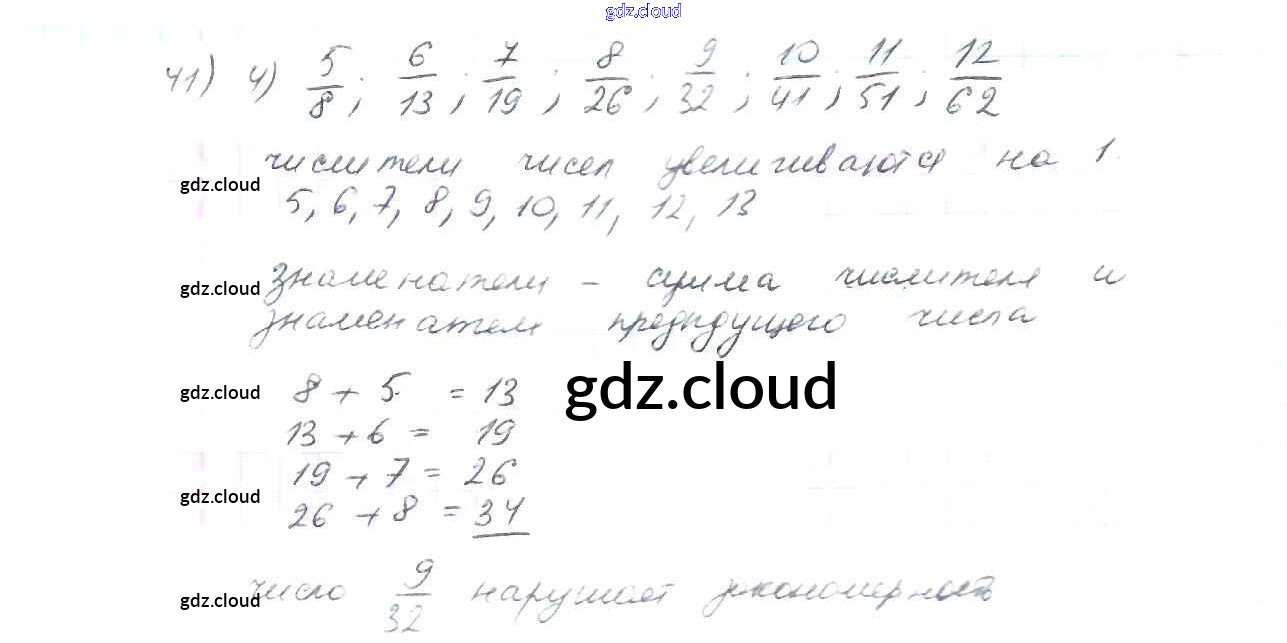 gdz.cloud
41) 4) 5/8; 6/13; 7/19; 8/26; 9/32; 10/41; 11/51; 12/62
числители чисел увеличиваются на 1.
gdz.cloud
5, 6, 7, 8, 9, 10, 11, 12, 13
gdz.cloud
Знаменатели - сумма числителя и
знаменателя предыдущего числа
gdz.cloud
8 + 5 = 13
gdz.cloud
13 + 6 = 19
19 + 7 = 26
gdz.cloud
26 + 8 = 34
gdz.cloud
число 9/32 нарушает закономерность